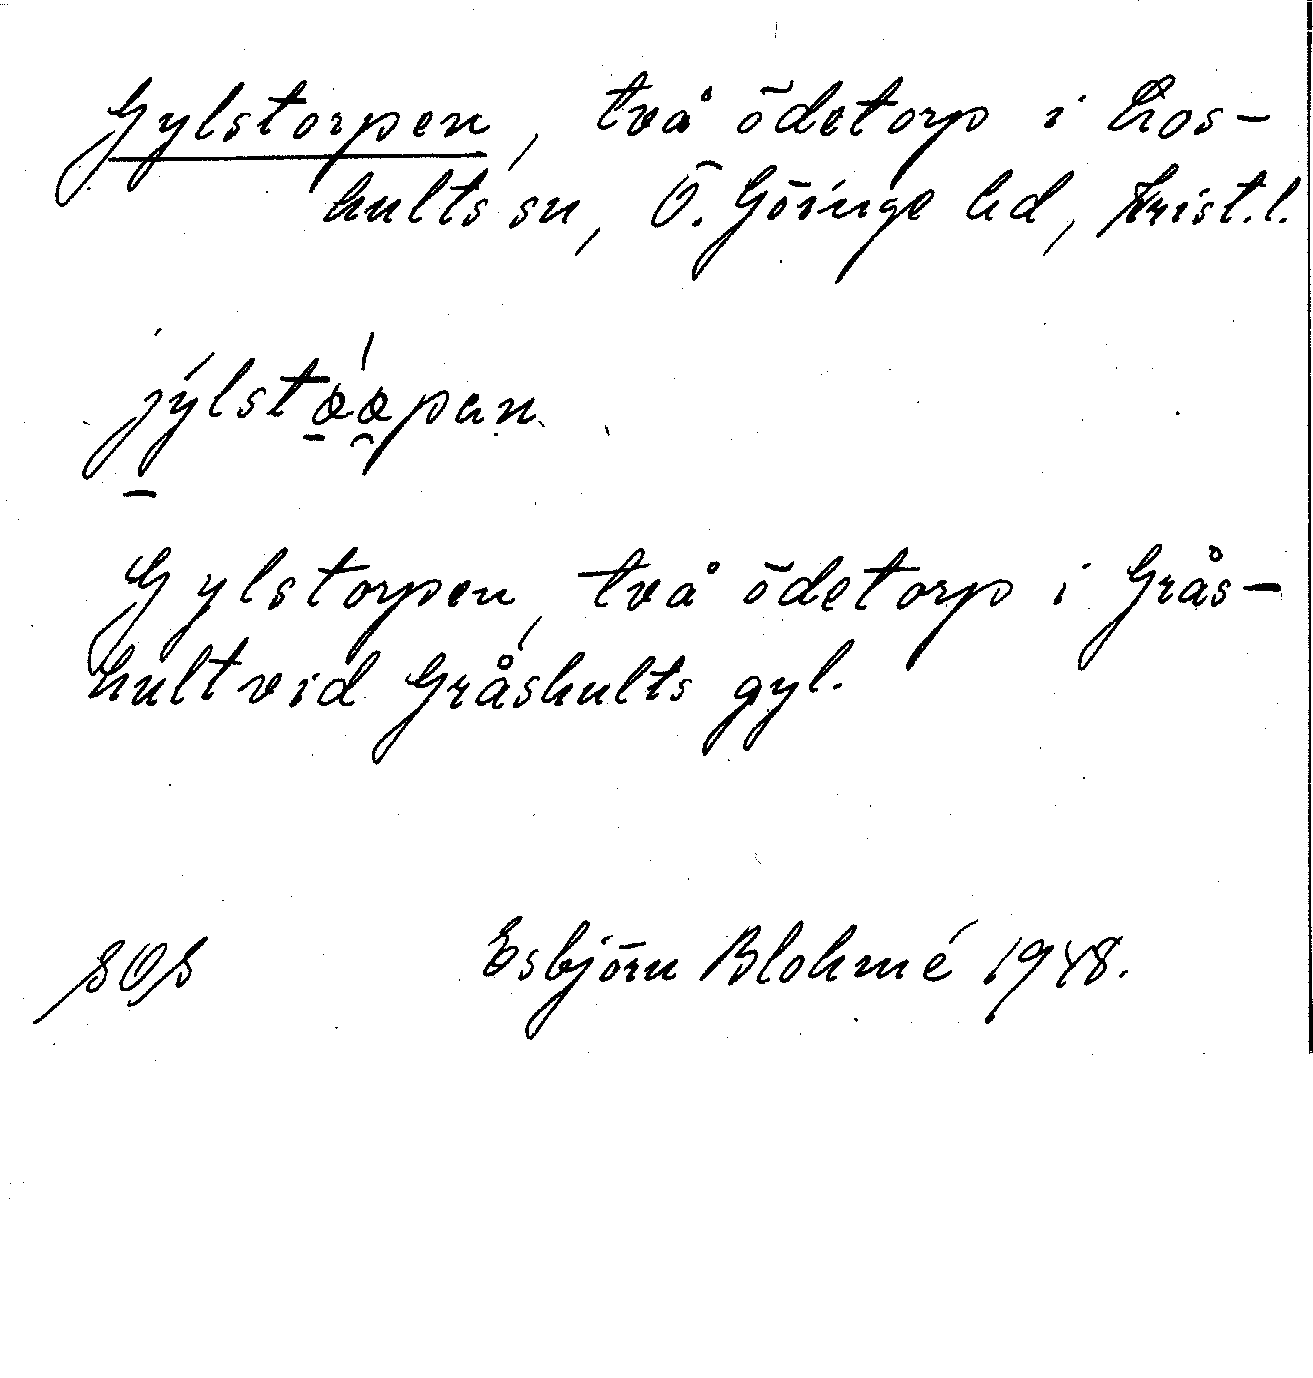 Gylstorpen, två ödetorp i Los-
hults sn, Ö. Göinge hd, Krist. l.
Gylstorpen, två ödetorp i Grås-
hult vid Gråshults gyl.
Esbjörn Blohmé 1948.